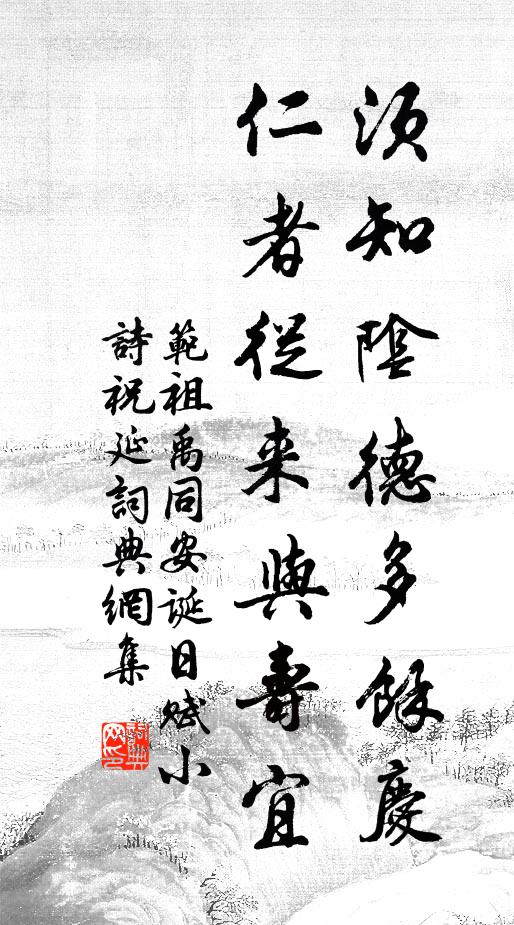 須知陰德多餘慶
仁者從来與壽宜
範祖禹同安誕日賦小
詩祝延詞典網集